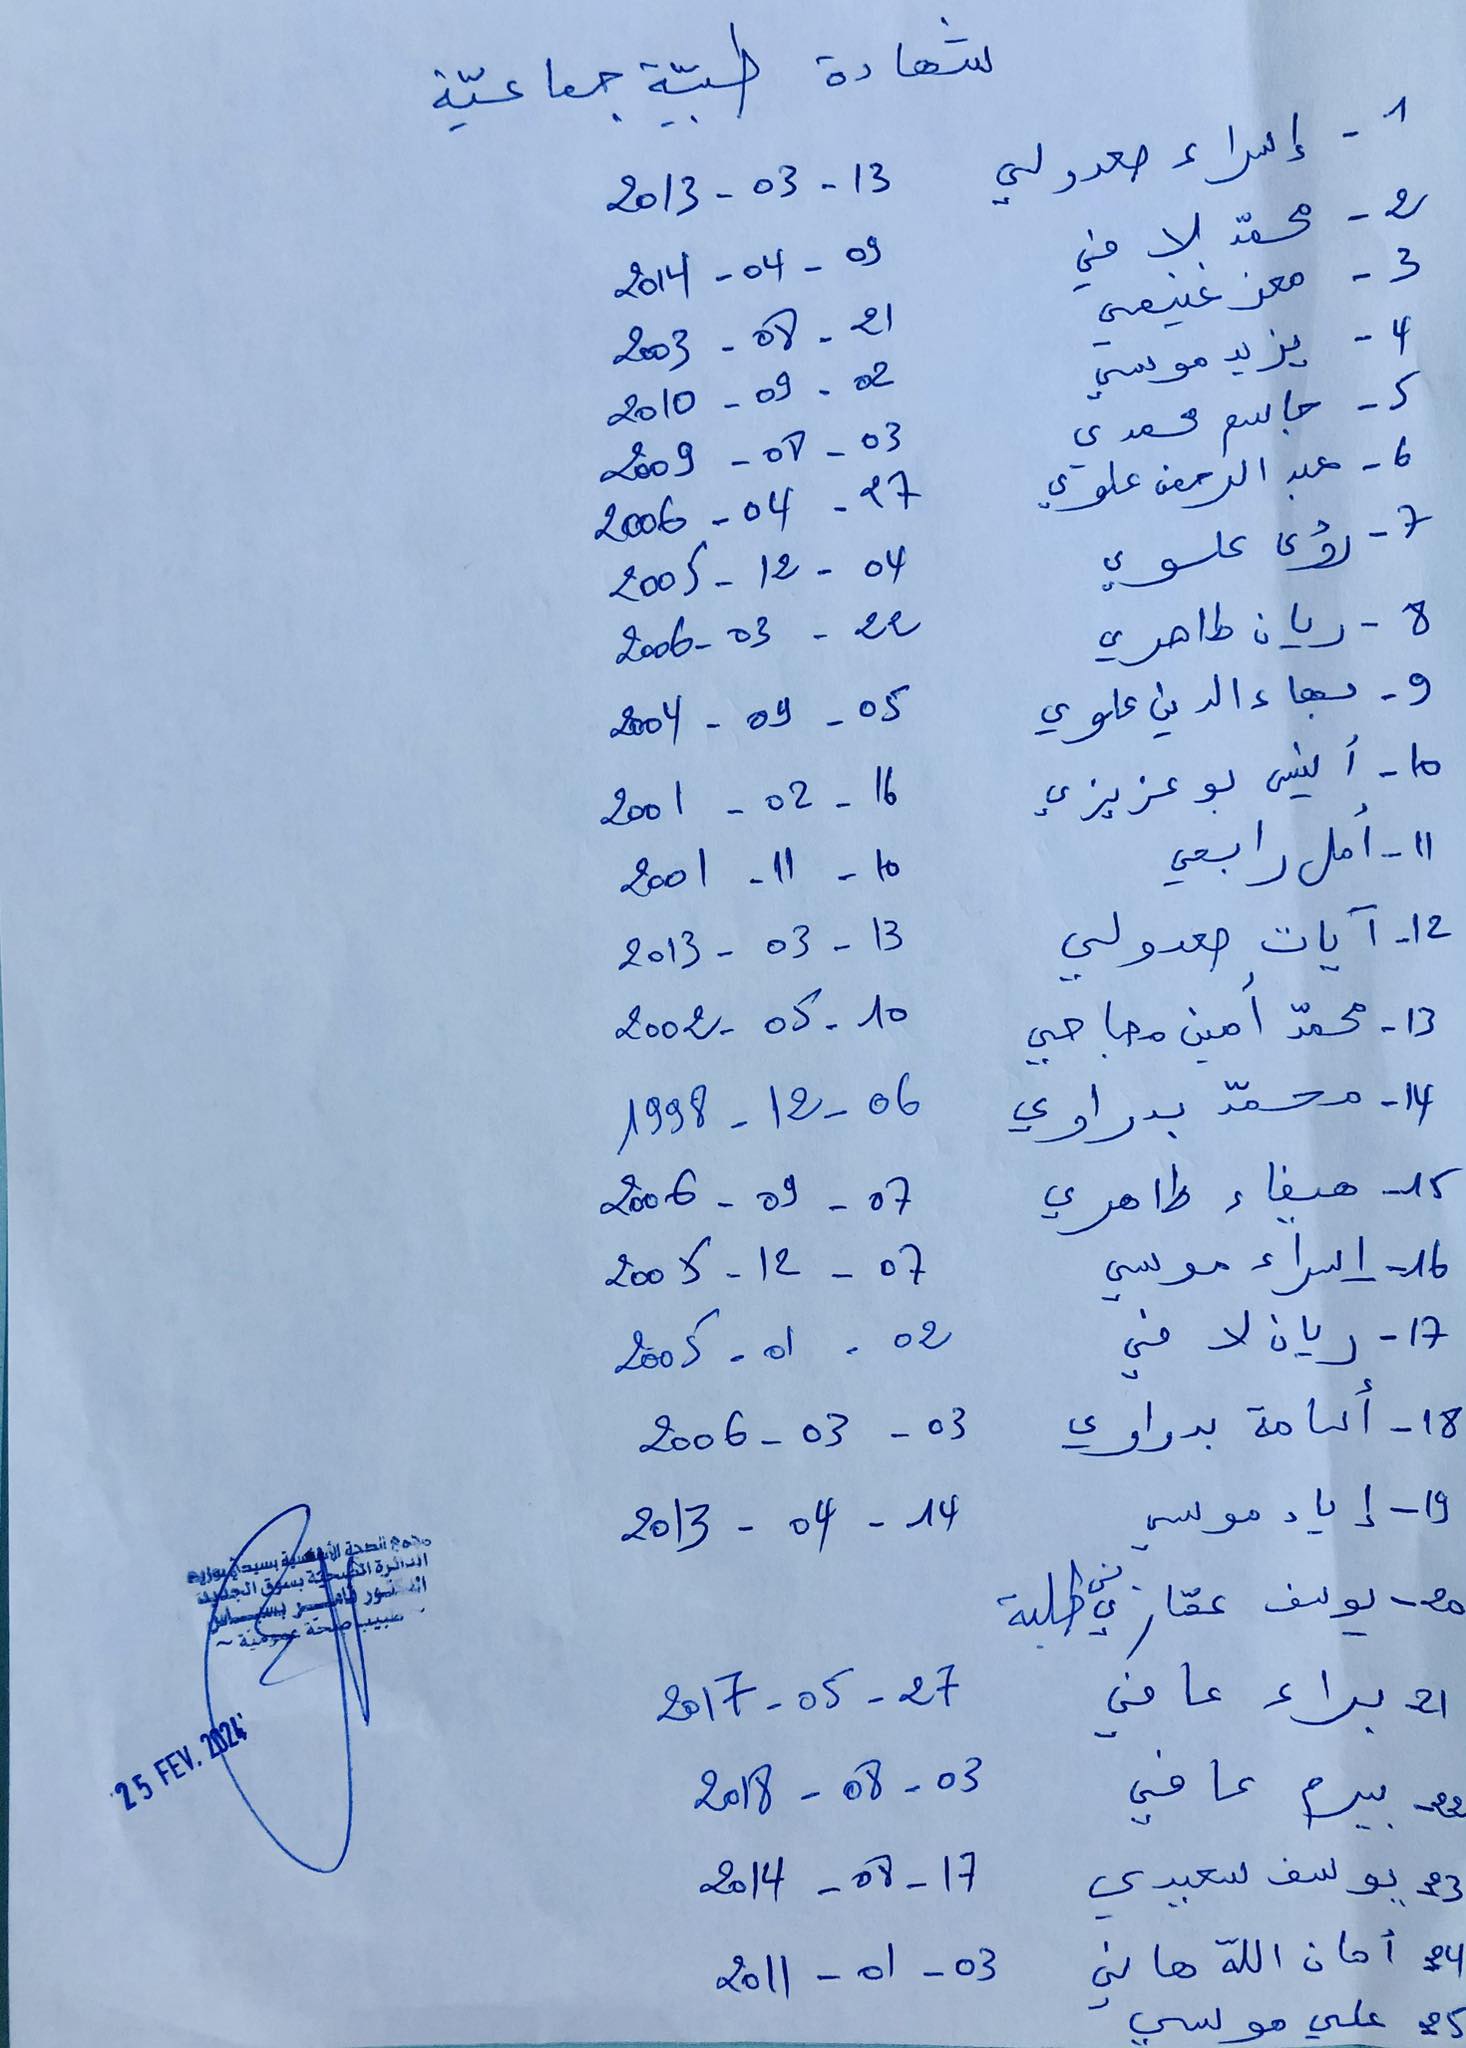 شهادة طبيّة جماعيّة
1 - إسراء معدولي 13 - 03 - 2013
2 - محمّد لافي 09 - 04 - 2014
3 - معز غنيمي 21 - 08 - 2003
4 - يزيد موسي 02 - 09 - 2010
5 - جاسم محمدي 03 - 08 - 2009
6 - عبد الرحمن علوي 27 - 04 - 2006
7 - رؤى علوي 04 - 12 - 2005
8 - ريان طاهري 22 - 03 - 2006
9 - بهاء الدين علوي 05 - 09 - 2004
10 - أنيس بوعزيزي 16 - 02 - 2001
11 - أمل رابعي 10 - 11 - 2001
12 - آيات معدولي 13 - 03 - 2013
13 - محمّد أمين 10 - 05 - 2002
14 - محمّد بدراوي 06 - 12 - 1998
15 - هيفاء طاهري 07 - 09 - 2006
16 - إسراء موسي 07 - 12 - 2005
17 - ريان لافي 02 - 01 - 2005
18 - أسامة بدراوي 03 - 03 - 2006
19 - إياد موسي 14 - 04 - 2013
20 - يوسف طلبة
21 براء عافي 27 - 05 - 2017
22 - بيرم عافي 03 - 08 - 2018
23 يوسف سعيدي 17 - 08 - 2014
24 أمان اللّه هاني 03 - 01 - 2011
25 علي موسي
مجمع الصحة الأساسية بسيدي بوزيد
الدائرة الصحية بسوق الجديد
طبيب صحة عمومية
25 FEV. 2024